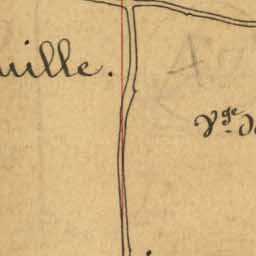 uille.
Vge de